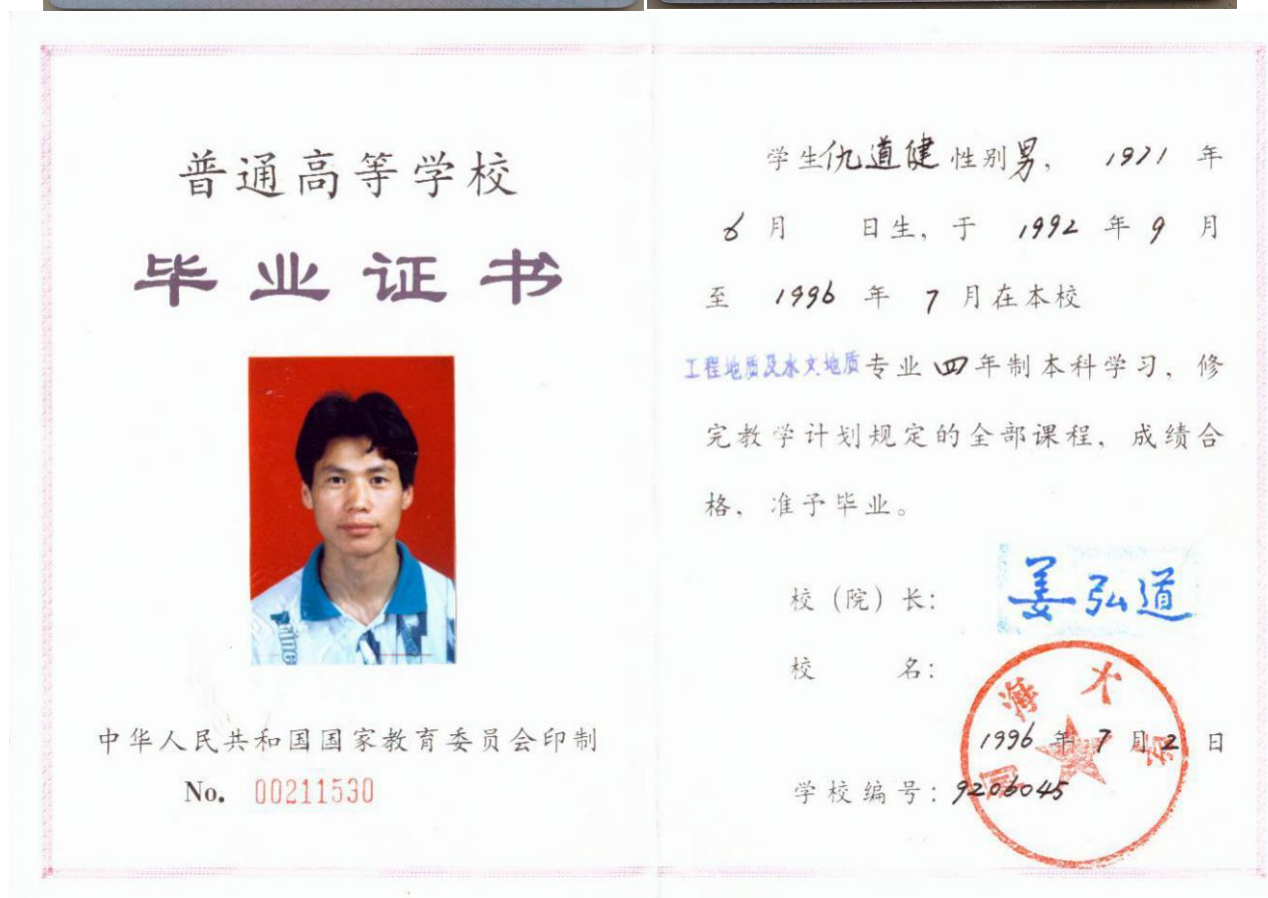 普通高等学校
毕业证书
中华人民共和国国家教育委员会印制
No. 00211530
学生仇道健性别男，1971年
6月 日生，于1992年9月
至1996年7月在本校
工程地质及水文地质专业四年制本科学习，修
完教学计划规定的全部课程，成绩合
格，准予毕业。
校（院）长：姜弘道
校 名：
河海大学
1996年7月2日
学校编号：9206045